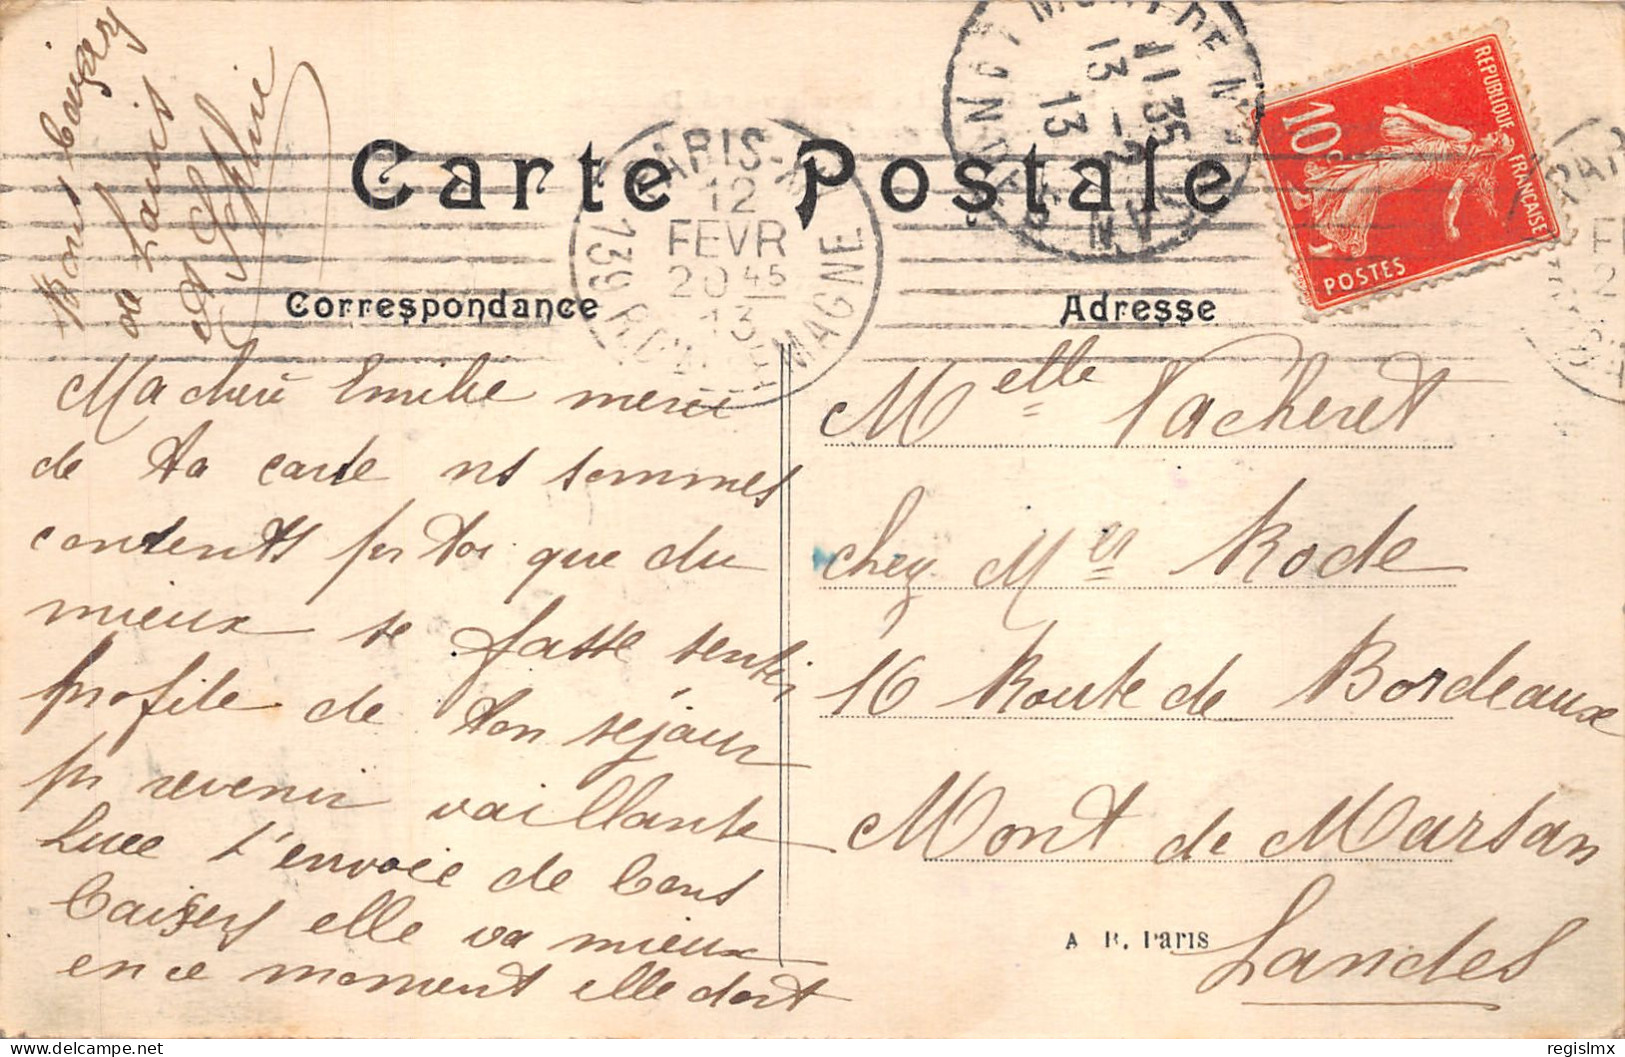 Carte Postale
Correspondance
Adresse
Ma cheri Emilie merci
de ta carte ns sommes
contents pr toi que du
mieux se fasse sentir
profite de ton séjour
pr revenir vaillante
Luce t'envoie de bons
baisers elle va mieux
en ce moment elle dort
Bons baisers
de Louis
et Sophie
Melle Vacheret
chez Mr Rode
16 Route de Bordeaux
Mont de Marsan
Landes
A R. Paris
REPUBLIQUE FRANCAISE
10c
POSTES
PARIS-X
12
FEVR
20 45
13
139 R MAGNE
MONT DE M
11 35
13 -2
13
regislmx